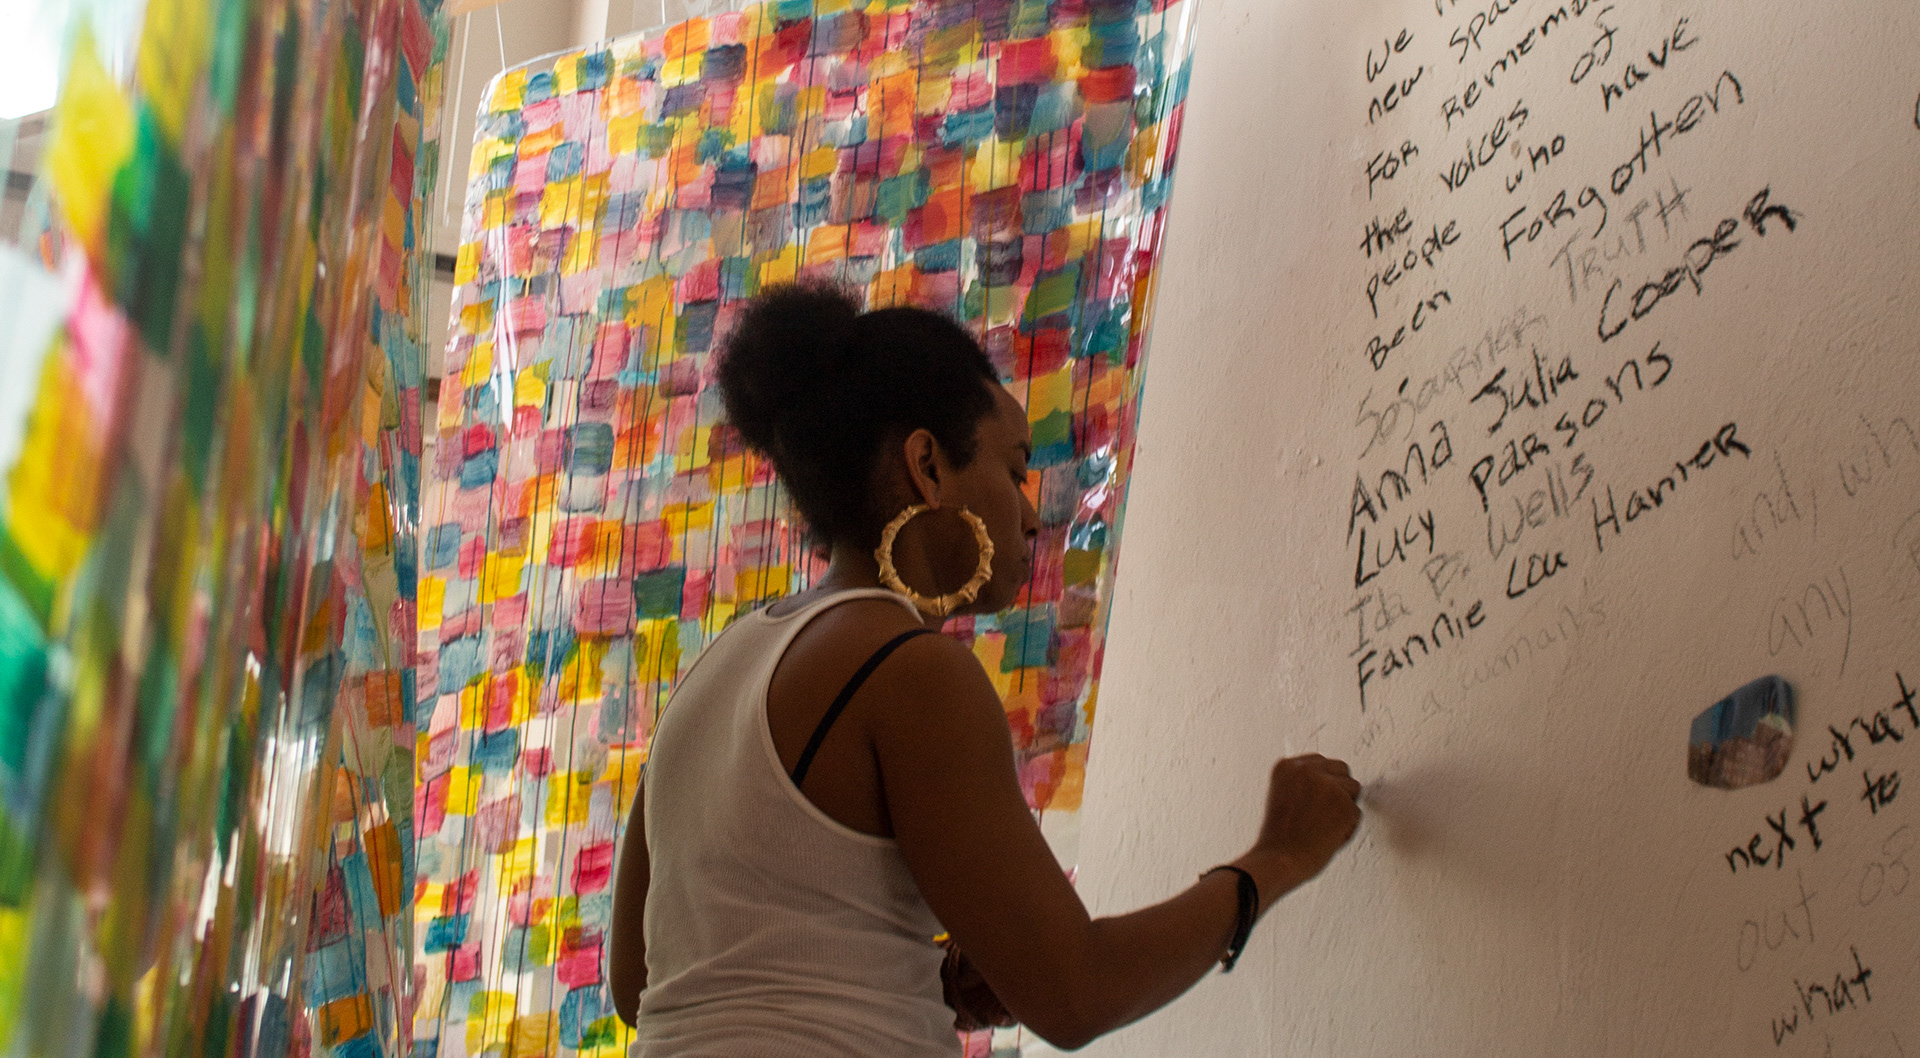 We
new space
FOR Remem
the voices of
people who have
Been FORgotten
Sojourner TRUTH
Anna Julia Cooper
Lucy PARSONS
Ida B. Wells
Fannie Lou Hamer
a womans
and, wh
any
what
next to
out of
what